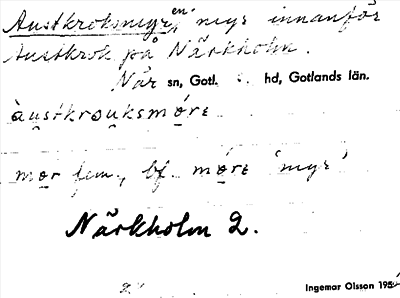 Austkroksmyr, en myr innanför
Austkrok på Närkholm.
När sn, Gotl. s. hd, Gotlands län.
àu̯stkrou̯ksmǫ́rɛ
mǫr fem., bf. mǫ́rɛ 'myr'
Närkholm 2.
Ingemar Olsson 195